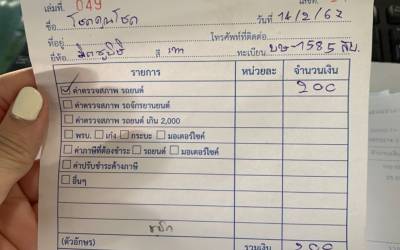 เล่มที่ 049
ชื่อ โชคคูณโชค วันที่ 14/2/67
ที่อยู่ โทรศัพท์ที่ติดต่อ
ยี่ห้อ มิตซูบิชิ สี เทา ทะเบียน บษ-1585
รายการ หน่วยละ จำนวนเงิน
ค่าตรวจสภาพ รถยนต์ 200
ค่าตรวจสภาพ รถจักรยานยนต์
ค่าตรวจสภาพ รถยนต์ เกิน 2,000
พรบ. เก๋ง กระบะ มอเตอร์ไซค์
ค่าภาษีที่ต้องชำระ รถยนต์ มอเตอร์ไซค์
ค่าปรับชำระค้างภาษี
อื่นๆ
(ตัวอักษร) รวมเงิน 200